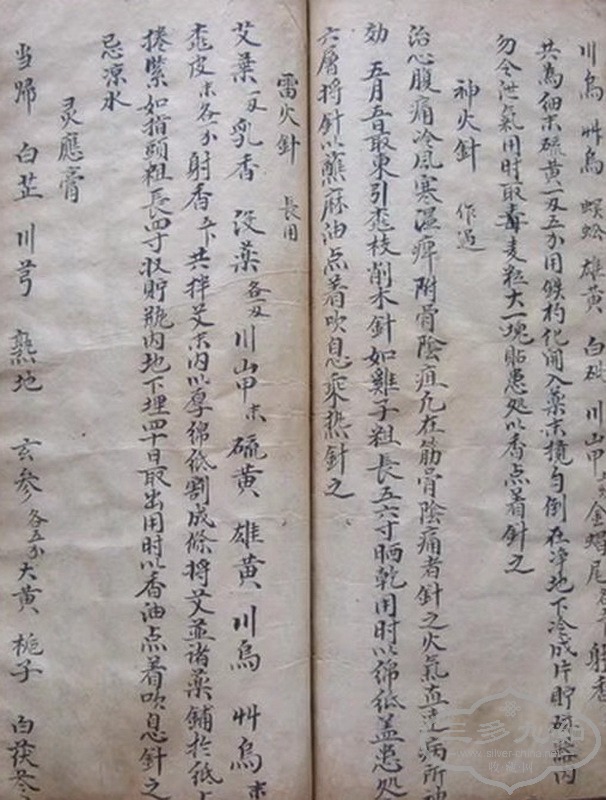 川烏 艸烏 蜈蚣 雄黃 白砒 川山甲 全蝎尾 射香
共為細末硫黃一又五分用鉄杓化開入藥末攪勻倒在净地下冷成片貯磁器內
勿令泄氣用時取 麦粒大一塊貼患処以香点着針之
神火針 作过
治心腹痛冷风寒湿痺附骨陰疽凢在筋骨陰痛者針之火氣直達病所神
効 五月五日取東引桃枝削木針如雞子粗長五六寸晒乾用時以綿紙盖患処
六層將針以蘸麻油点着吹息乘热針之
雷火針 長用
艾葉 乳香 沒藥 各 川山甲末 硫黃 雄黃 川烏 艸烏末
桃皮末各 射香 共拌艾末內以厚綿紙割成條將艾並诸藥鋪於纸上
捲紧如指頭粗長四寸收貯瓶內地下埋四十日取出用時以香油点着吹息針之
忌凉水
灵應膏
当归 白芷 川芎 熟地 玄参各五分 大黃 栀子 白茯苓
三多九如
www.silver-china.net